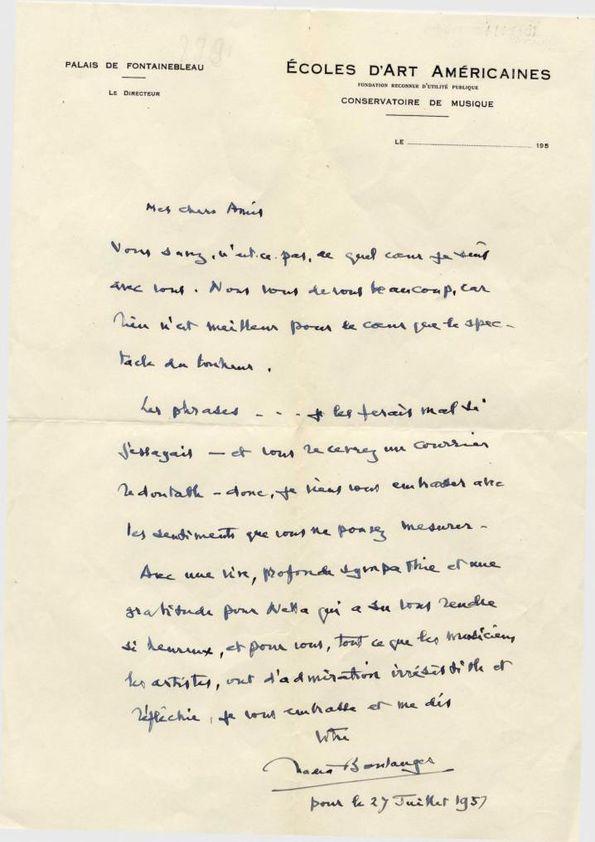 PALAIS DE FONTAINEBLEAU
LE DIRECTEUR
ÉCOLES D'ART AMÉRICAINES
FONDATION RECONNUE D'UTILITÉ PUBLIQUE
CONSERVATOIRE DE MUSIQUE
LE 195
Mes chers Amis
Vous savez, n'est-ce-pas, de quel cœur je suis
avec vous. Nous vous devons beaucoup, car
rien n'est meilleur pour le cœur que le spec-
tacle du bonheur.
Les phrases - - - je les ferais mal si
j'essayais — et vous recevrez un courrier
redoutable - donc, je viens vous embrasser avec
les sentiments que vous ne pouvez mesurer -
Avec une vive, profonde sympathie et une
gratitude pour Nella qui a su vous rendre
si heureux, et pour vous, tout ce que les musiciens
les artistes, ont d'admiration irrésistible et
réfléchie, je vous embrasse et me dis
Votre
Nadia Boulanger
pour le 27 Juillet 1957